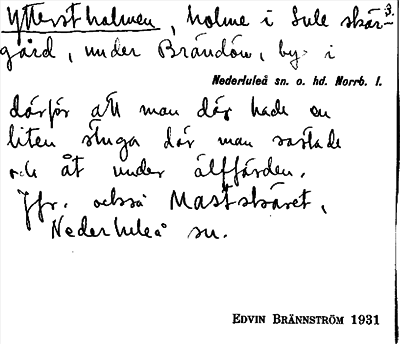 Ytterst holmen, holme i Lule skär- 3.
gård, under Brändön, by i
Nederluleå sn. o. hd. Norrb. l.
därför att man där hade en
liten stuga där man rastade
och åt under älffärden.
Jfr. också Mastskäret,
Nederluleå sn.
EDVIN BRÄNNSTRÖM 1931